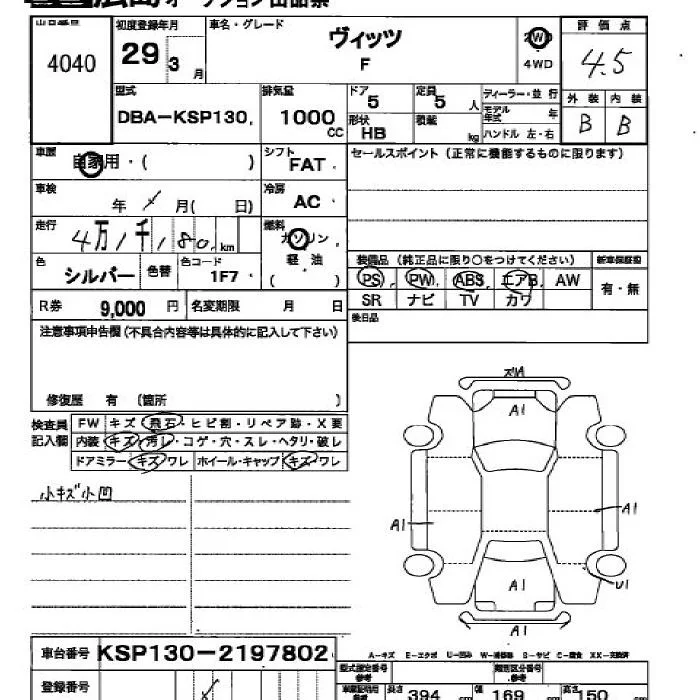 広島 オークション出品票
出品番号
4040
初度登録年月
29 3 月
車名・グレード
ヴィッツ
F
2WD
4WD
評価点
4.5
型式
DBA-KSP130.
排気量
1000
CC
ドア
5
定員
5 人
ディーラー・並行
モデル年式 年
ハンドル 左・右
外装 内装
B B
形状
HB
積載
kg
車歴
自家用・( )
シフト
FAT
セールスポイント(正常に機能するものに限ります)
車検
年 月( 日)
冷房
AC
走行
4万1千180km
燃料
ガソリン
軽油
( )
色
シルバー
色替
色コード
1F7
装備品(純正品に限り○をつけてください)
新車保証書
PS PW ABS エアB AW
有・無
SR ナビ TV カワ
後日品
R券
9,000 円
名変期限 月 日
注意事項申告欄(不具合内容等は具体的に記入して下さい)
修復歴 有 (箇所 )
検査員記入欄
FW キズ・飛石・ヒビ割・リペア跡・X要
内装 キズ・汚レ・コゲ・穴・スレ・ヘタリ・破レ
ドアミラー キズ・ワレ ホイール・キャップ キズ・ワレ
小キズ小凹
A1
A1
A1
A1
U1
A1
A-キズ E-エクボ U-凹み W-補修跡 S-サビ C-腐食 XX-交換済
車台番号
KSP130-2197802
登録番号
型式指定番号
類別区分番号
長さ 394 cm 幅 169 cm 高さ 150 cm